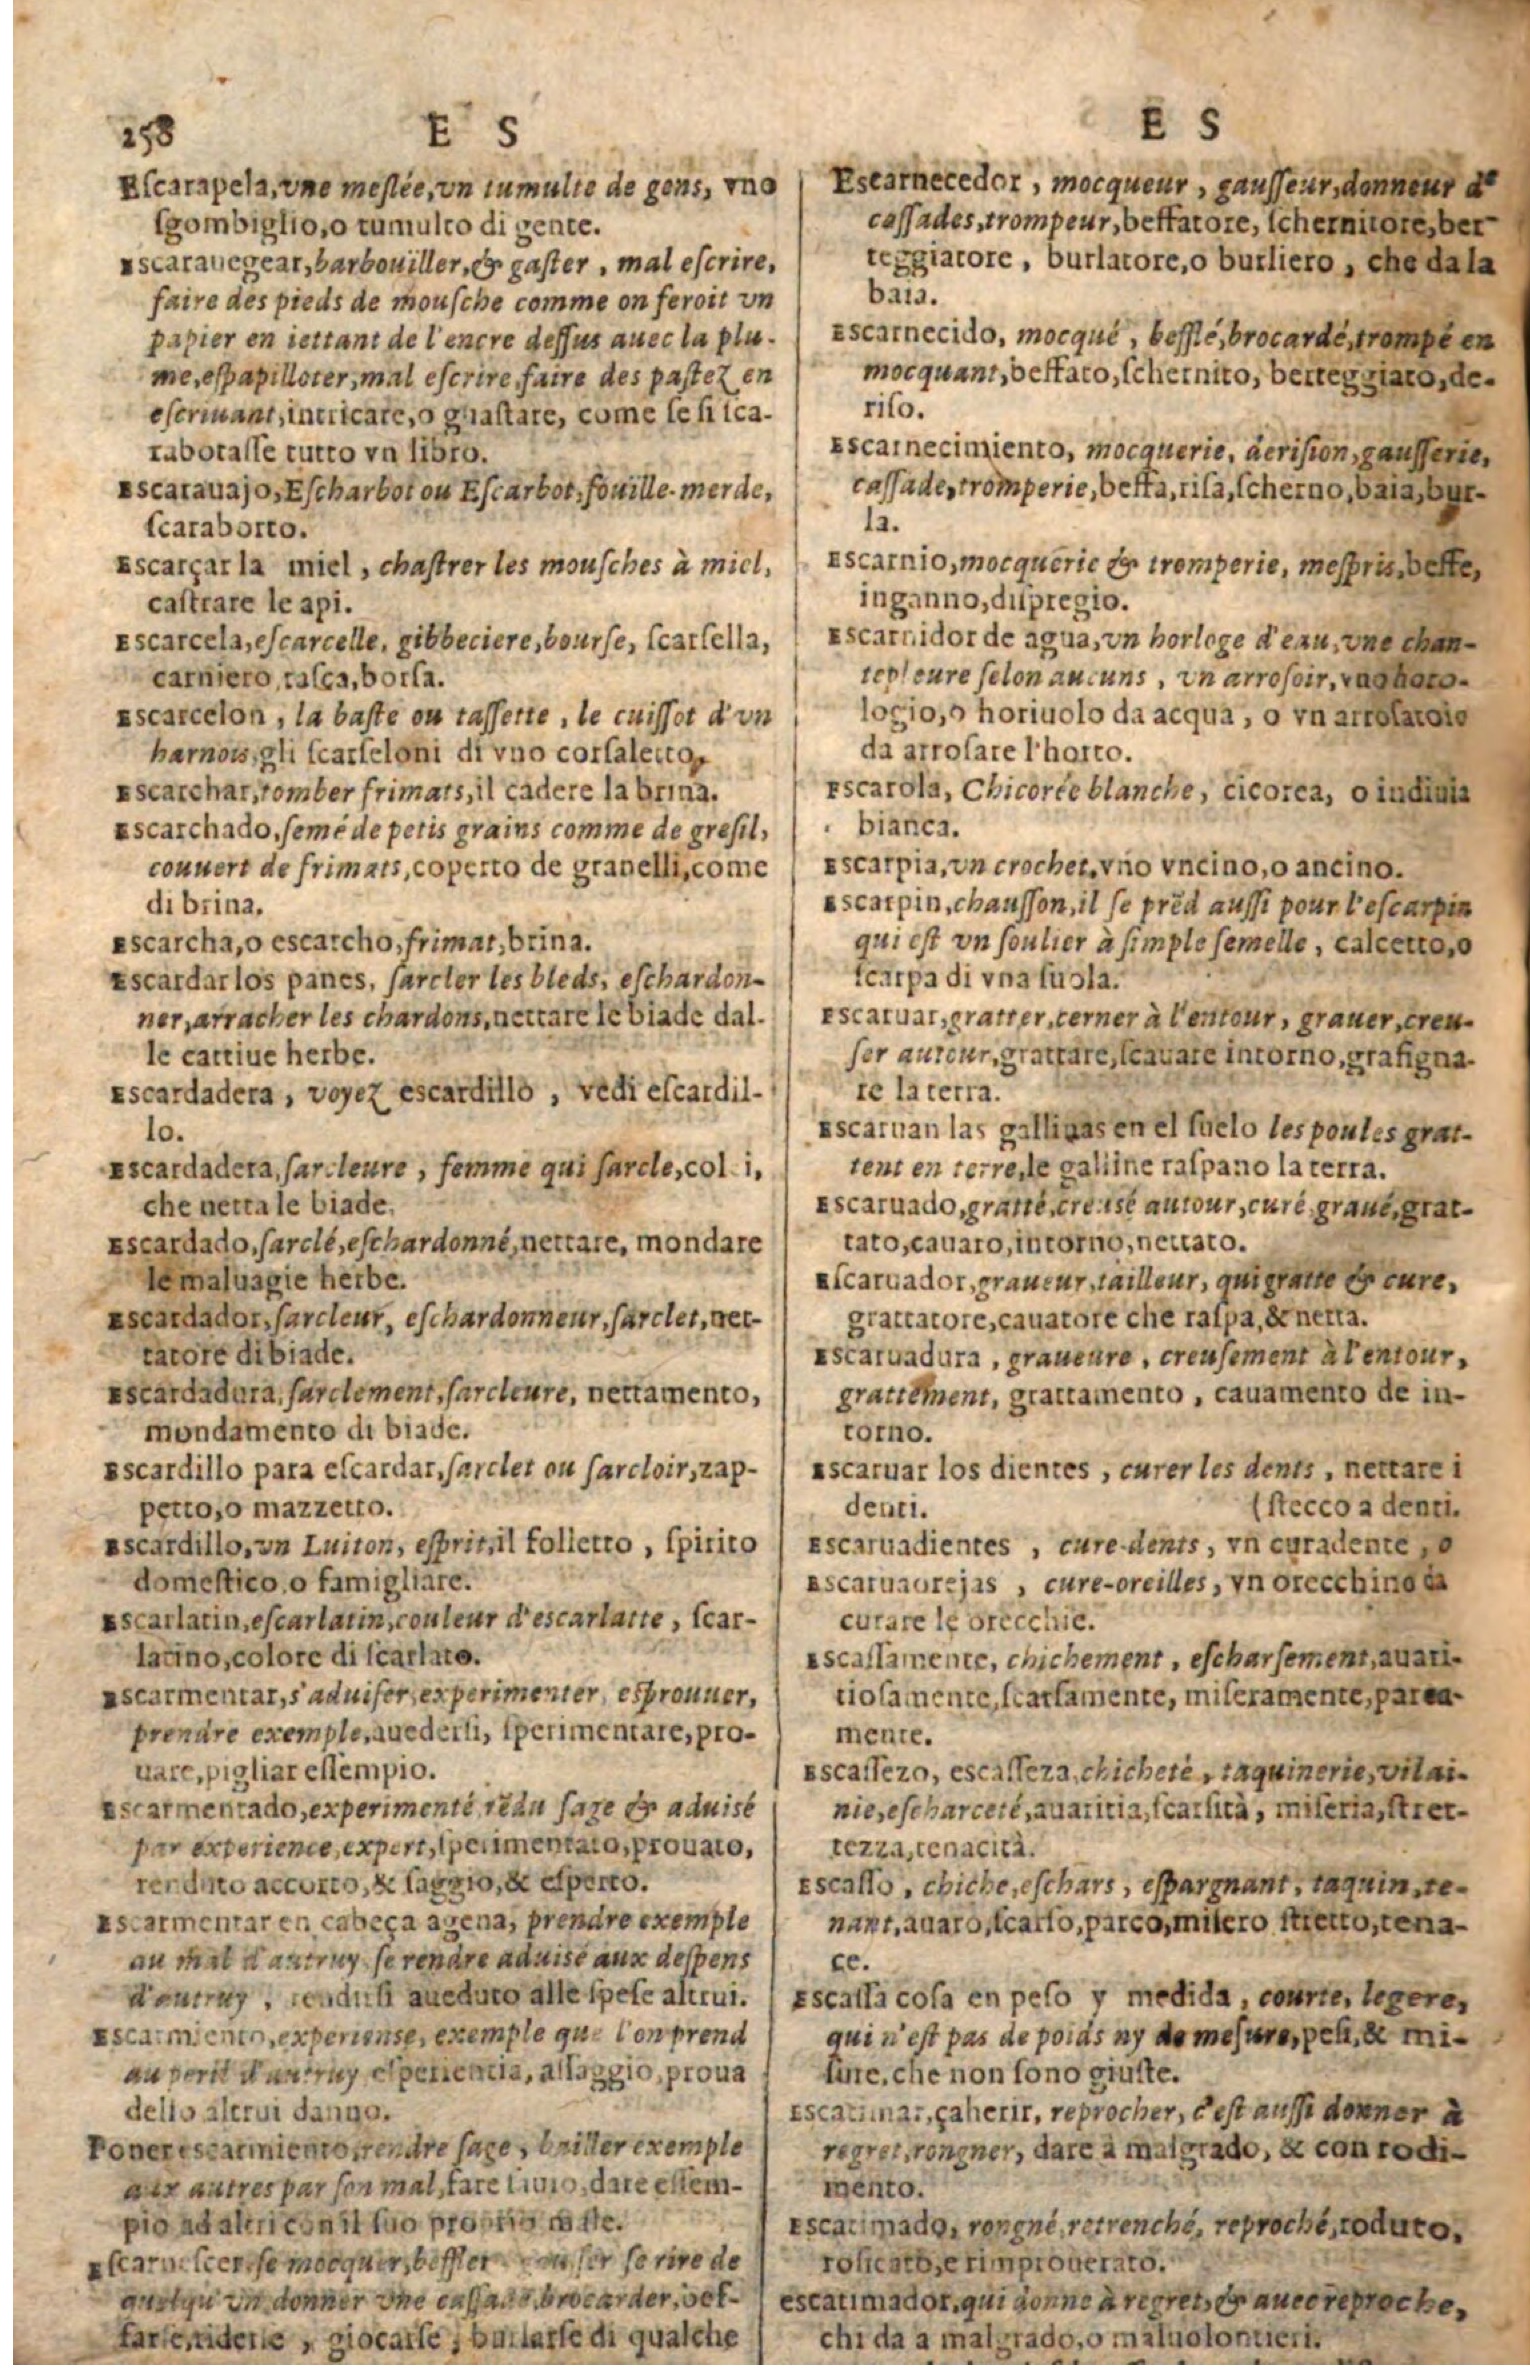 258 E S
Eſcarapela, vne meſlée, vn tumulte de gens, vno
ſgombiglio, o tumulto di gente.
Escarauegear, barbouïller, & gaſter, mal eſcrire,
faire des pieds de mouſche comme on feroit vn
papier en iettant de l'encre deſſus auec la plu-
me, eſpapilloter, mal eſcrire, faire des paſtez en
eſcriuant, intricare, o guaſtare, come ſe ſi ſca-
rabotaſſe tutto vn libro.
Escarauajo, Eſcharbot ou Eſcarbot, fouille-merde,
ſcaraborto.
Escarçar la miel, chaſtrer les mouſches à miel,
caſtrare le api.
Escarcela, eſcarcelle, gibbeciere, bourſe, ſcarſella,
carniero, taſca, borſa.
Escarcelon, la baſte ou taſſette, le cuiſſot d'vn
harnois, gli ſcarſeloni di vno corſaletto,
Escarchar, tomber frimats, il cadere la brina.
Escarchado, ſemé de petis grains comme de greſil,
couuert de frimats, coperto de granelli, come
di brina.
Escarcha, o escarcho, frimat, brina.
Escardar los panes, ſarcler les bleds, eſchardon-
ner, arracher les chardons, nettare le biade dal-
le cattiue herbe.
Escardadera, voyez escardillo, vedi eſcardil-
lo.
Escardadera, ſarcleure, femme qui ſarcle, col i,
che netta le biade.
Escardado, ſarclé, eſchardonné, nettare, mondare
le maluagie herbe.
Escardador, ſarcleur, eſchardonneur, ſarclet, net-
tatore di biade.
Escardadura, ſarclement, ſarcleure, nettamento,
mondamento di biade.
Escardillo para eſcardar, ſarclet ou ſarcloir, zap-
petto, o mazzetto.
Escardillo, vn Luiton, eſprit, il folletto, ſpirito
domeſtico, o famigliare.
Escarlatin, eſcarlatin, couleur d'eſcarlatte, ſcar-
latino, colore di ſcarlato.
Escarmentar, s'aduiſer, experimenter, eſprouuer,
prendre exemple, auederſi, ſperimentare, pro-
uare, pigliar eſſempio.
Escarmentado, experimenté, rẽdu ſage & aduisé
par experience, expert, ſperimentato, prouato,
renduto accorto, & ſaggio, & eſperto.
Escarmentar en cabeça agena, prendre exemple
au mal d'autruy, ſe rendre aduisé aux deſpens
d'autruy, rendurſi aueduto alle ſpeſe altrui.
Escarmiento, experience, exemple que l'on prend
au peril d'autruy, eſperientia, aſſaggio, proua
dello altrui danno.
Poner escarmiento, rendre ſage, bailler exemple
aux autres par ſon mal, fare ſauio, dare eſſem-
pio ad altri con il ſuo proprio male.
Eſcarneſcer, ſe mocquer, beffler, ſe rire de
quelqu'vn, donner vne caſſade, brocarder, bef-
farſe, riderſe, giocarſe, burlarſe di qualche
E S
Escarnecedor, mocqueur, gauſſeur, donneur de
caſſades, trompeur, beffatore, ſchernitore, ber-
teggiatore, burlatore, o burliero, che da la
baia.
Escarnecido, mocqué, befflé, brocardé, trompé en
mocquant, beffato, ſchernito, berteggiato, de-
riſo.
Escarnecimiento, mocquerie, deriſion, gauſſerie,
caſſade, tromperie, beffa, riſa, ſcherno, baia, bur-
la.
Escarnio, mocquerie & tromperie, meſpris, beffe,
inganno, diſpregio.
Escarnidor de agua, vn horloge d'eau, vne chan-
tepleure ſelon aucuns, vn arroſoir, vno horo-
logio, o horiuolo da acqua, o vn arroſatoio
da arroſare l'horto.
Escarola, Chicorée blanche, cicorea, o indiuia
bianca.
Escarpia, vn crochet, vno vncino, o ancino.
Escarpin, chauſſon, il ſe prẽd auſſi pour l'eſcarpin
qui eſt vn ſoulier à ſimple ſemelle, calcetto, o
ſcarpa di vna ſuola.
Escaruar, gratter, cerner à l'entour, grauer, creu-
ſer autour, grattare, ſcauare intorno, grafigna-
re la terra.
Escaruan las gallinas en el ſuelo les poules grat-
tent en terre, le galline raſpano la terra.
Escaruado, gratté, creusé autour, curé, graué, grat-
tato, cauato, intorno, nettato.
Eſcaruador, graueur, tailleur, qui gratte & cure,
grattatore, cauatore che raſpa, & netta.
Escaruadura, graueure, creuſement à l'entour,
grattement, grattamento, cauamento de in-
torno.
Escaruar los dientes, curer les dents, nettare i
denti. (ſtecco a denti.
Escaruadientes, cure-dents, vn curadente, o
Escaruaorejas, cure-oreilles, vn orecchino da
curare le orecchie.
Escaſſamente, chichement, eſcharſement, auari-
tioſamente, ſcarſamente, miſeramente, parca-
mente.
Escaſſezo, escaſſeza, chicheté, taquinerie, vilai-
nie, eſcharceté, auaritia, ſcarſità, miſeria, ſtret-
tezza, tenacità.
Escaſſo, chiche, eſchars, eſpargnant, taquin, te-
nant, auaro, ſcarſo, parco, miſero ſtretto, tena-
ce.
Escaſſa coſa en peſo y medida, courte, legere,
qui n'eſt pas de poids ny de meſure, peſi, & mi-
ſure, che non ſono giuſte.
Escatimar, çaherir, reprocher, c'eſt auſſi donner à
regret, rongner, dare a malgrado, & con rodi-
mento.
Escatimado, rongné, retrenché, reproché, roduto,
roſicato, e rimprouerato.
escatimador, qui donne à regret, & auec reproche,
chi da a malgrado, o maluolontieri.